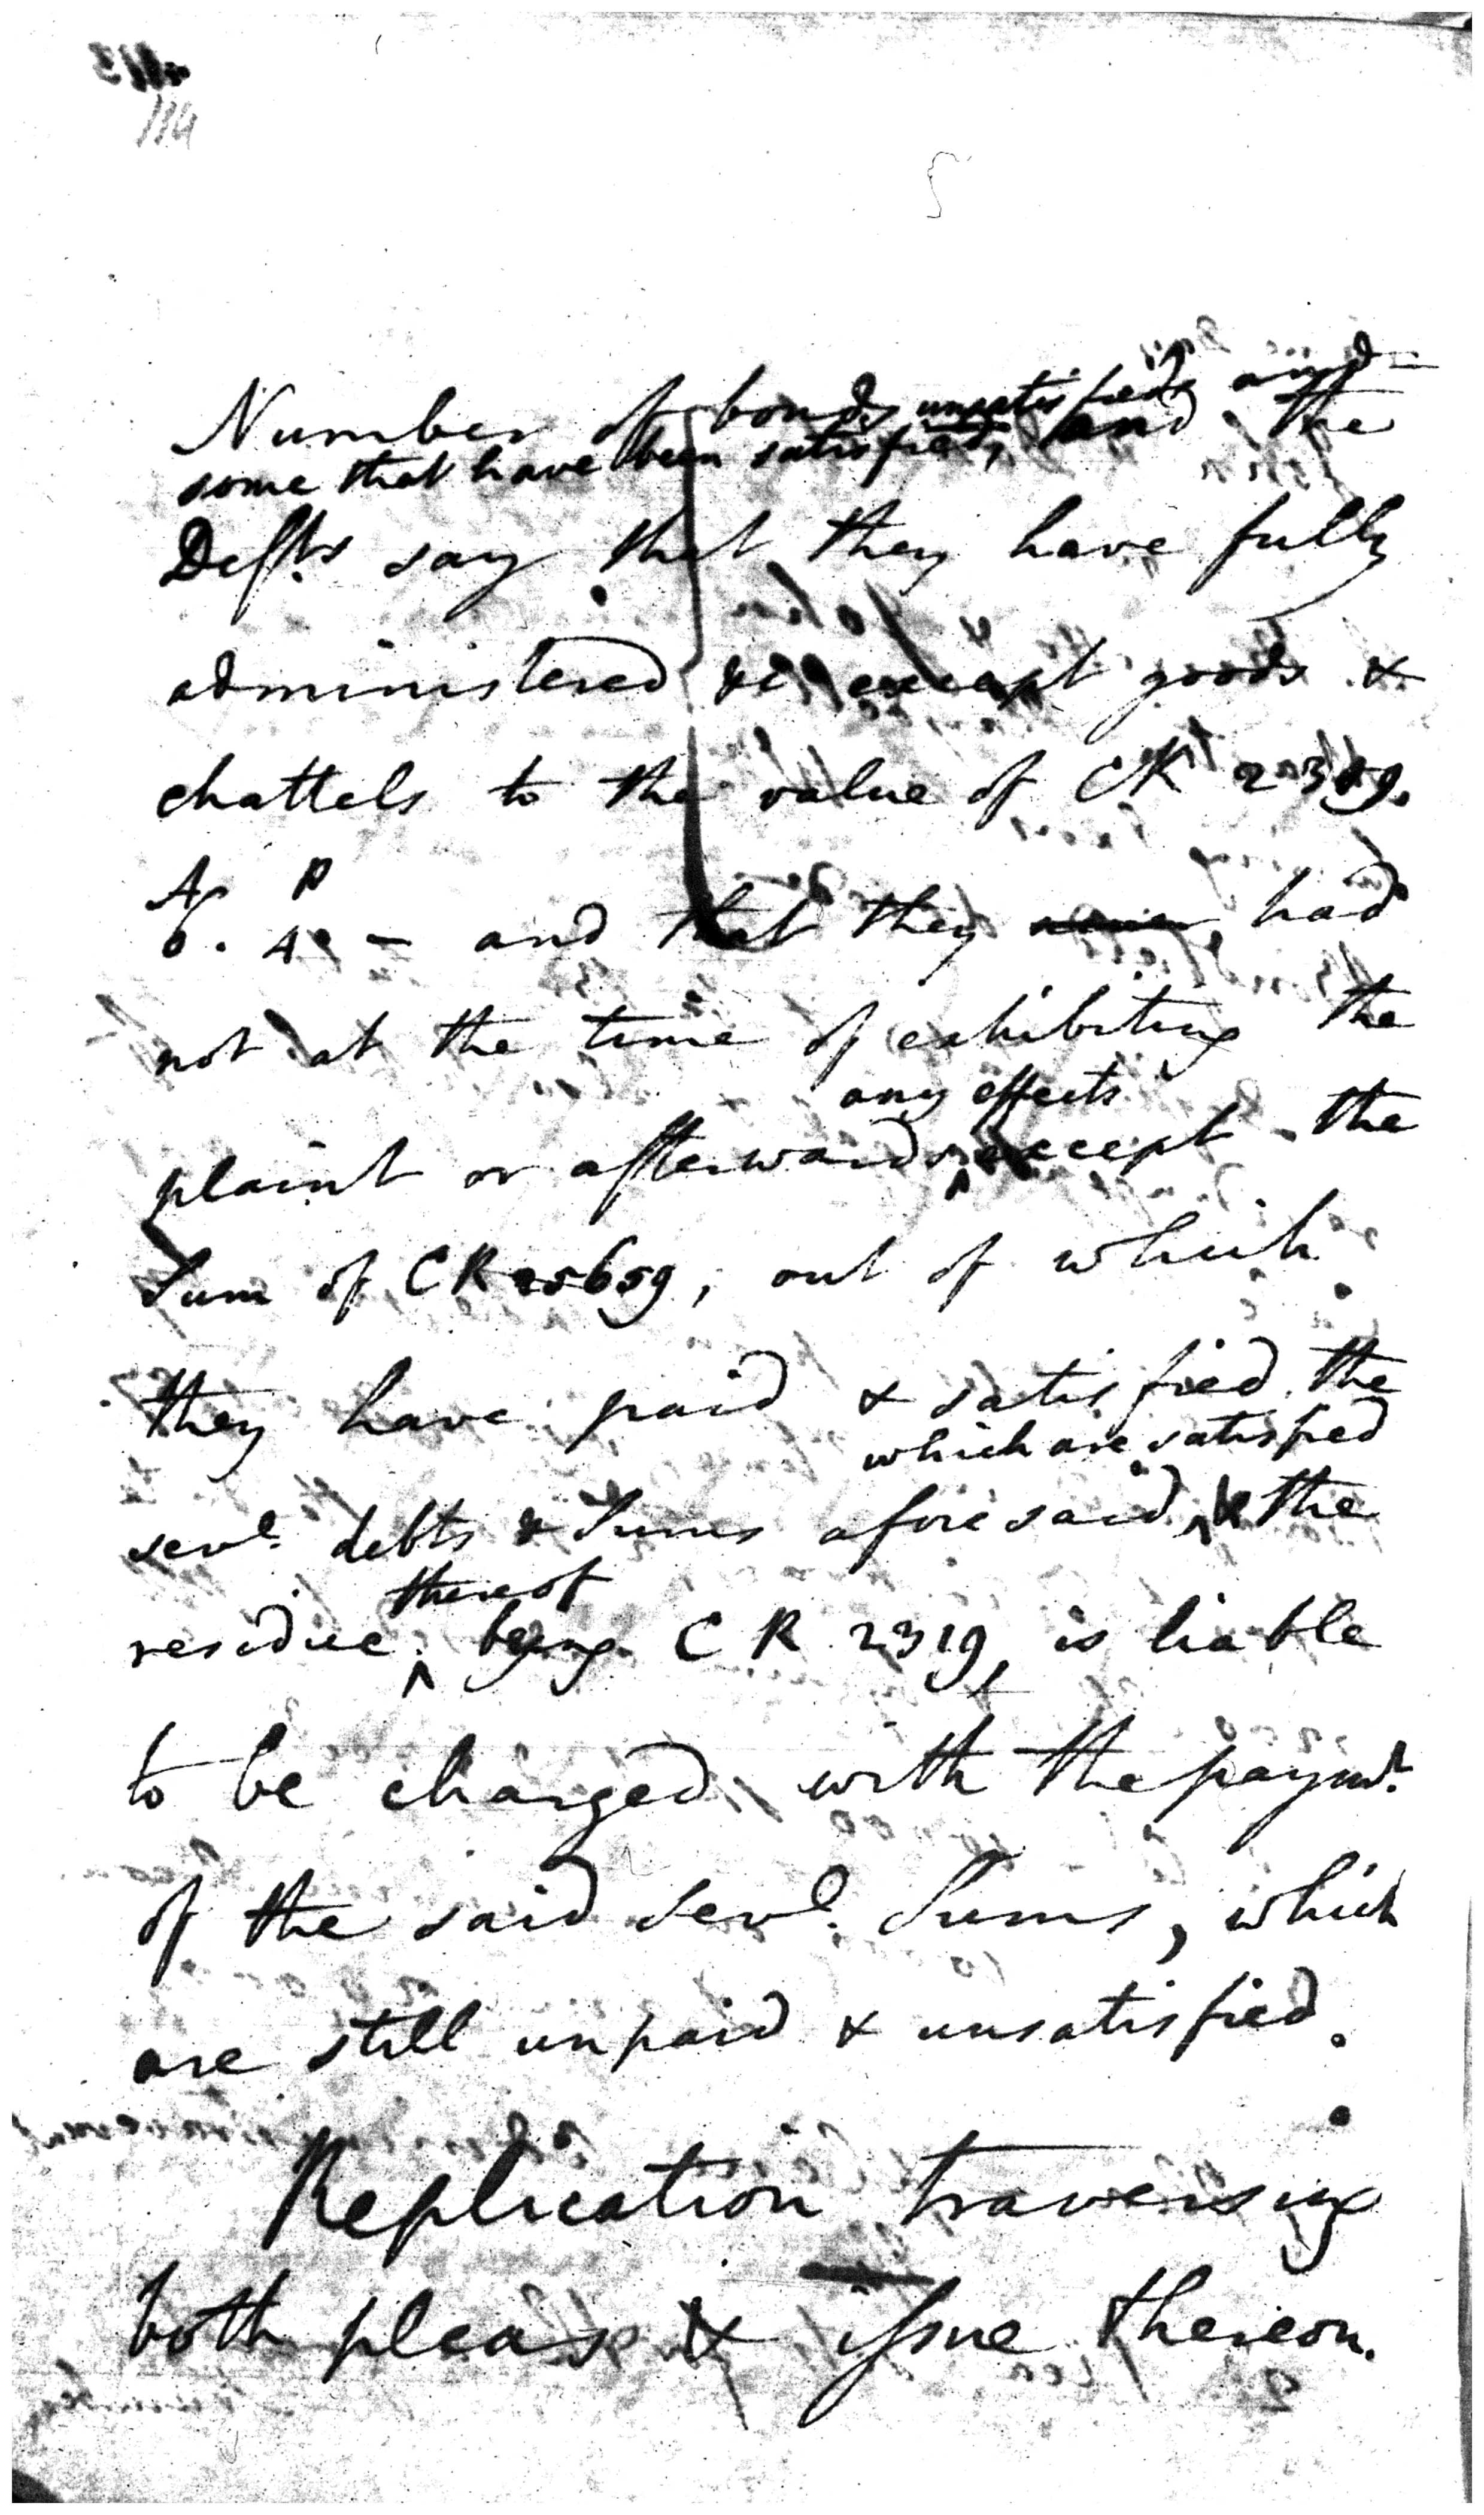 114
Number of bonds unsatisfied and
some that have been satisfied, and the
Defts say that they have fully
administered &c except goods &
chattels to the value of CR 2319.
As P
6. 4 - and that they had
not at the time of exhibiting the
any effects
plaint or afterwards, except the
Sum of CR 25659, out of which
they have paid & satisfied the
which are satisfied
sevl. debts & Sums aforesaid, & the
thereof
residue being CR 2319, is liable
to be charged with the paymt.
of the said sevl. Sums, which
are still unpaid & unsatisfied.
Replication traversing
both pleas & issue thereon.